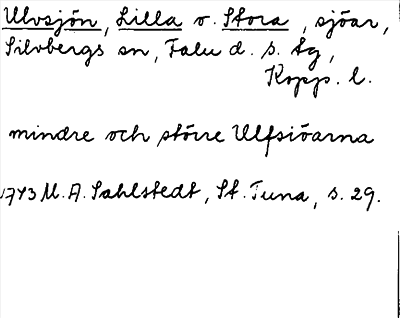 Ulvsjön, Lilla o. Stora, sjöar,
Silvbergs sn, Falu d. s. tg,
Kopp. l.
mindre och större Ulfsiöarna
1743 M. A. Sahlstedt, St. Tuna, s. 29.